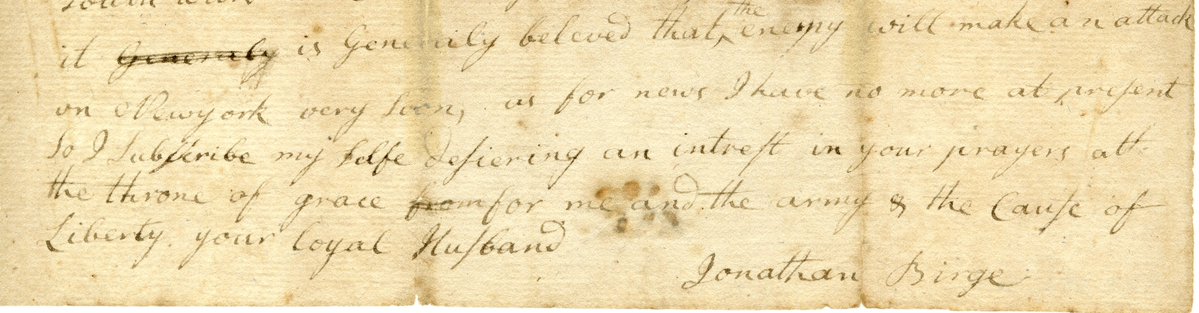 it Generaly is Generily beleved that the enemy will make an attack
on Newyork very soon, as for news I have no more at present
So I Subscribe my selfe desiering an intrest in your prayers att
the throne of grace from for me and the army & the Cause of
Liberty your loyal Husband
Jonathan Birge